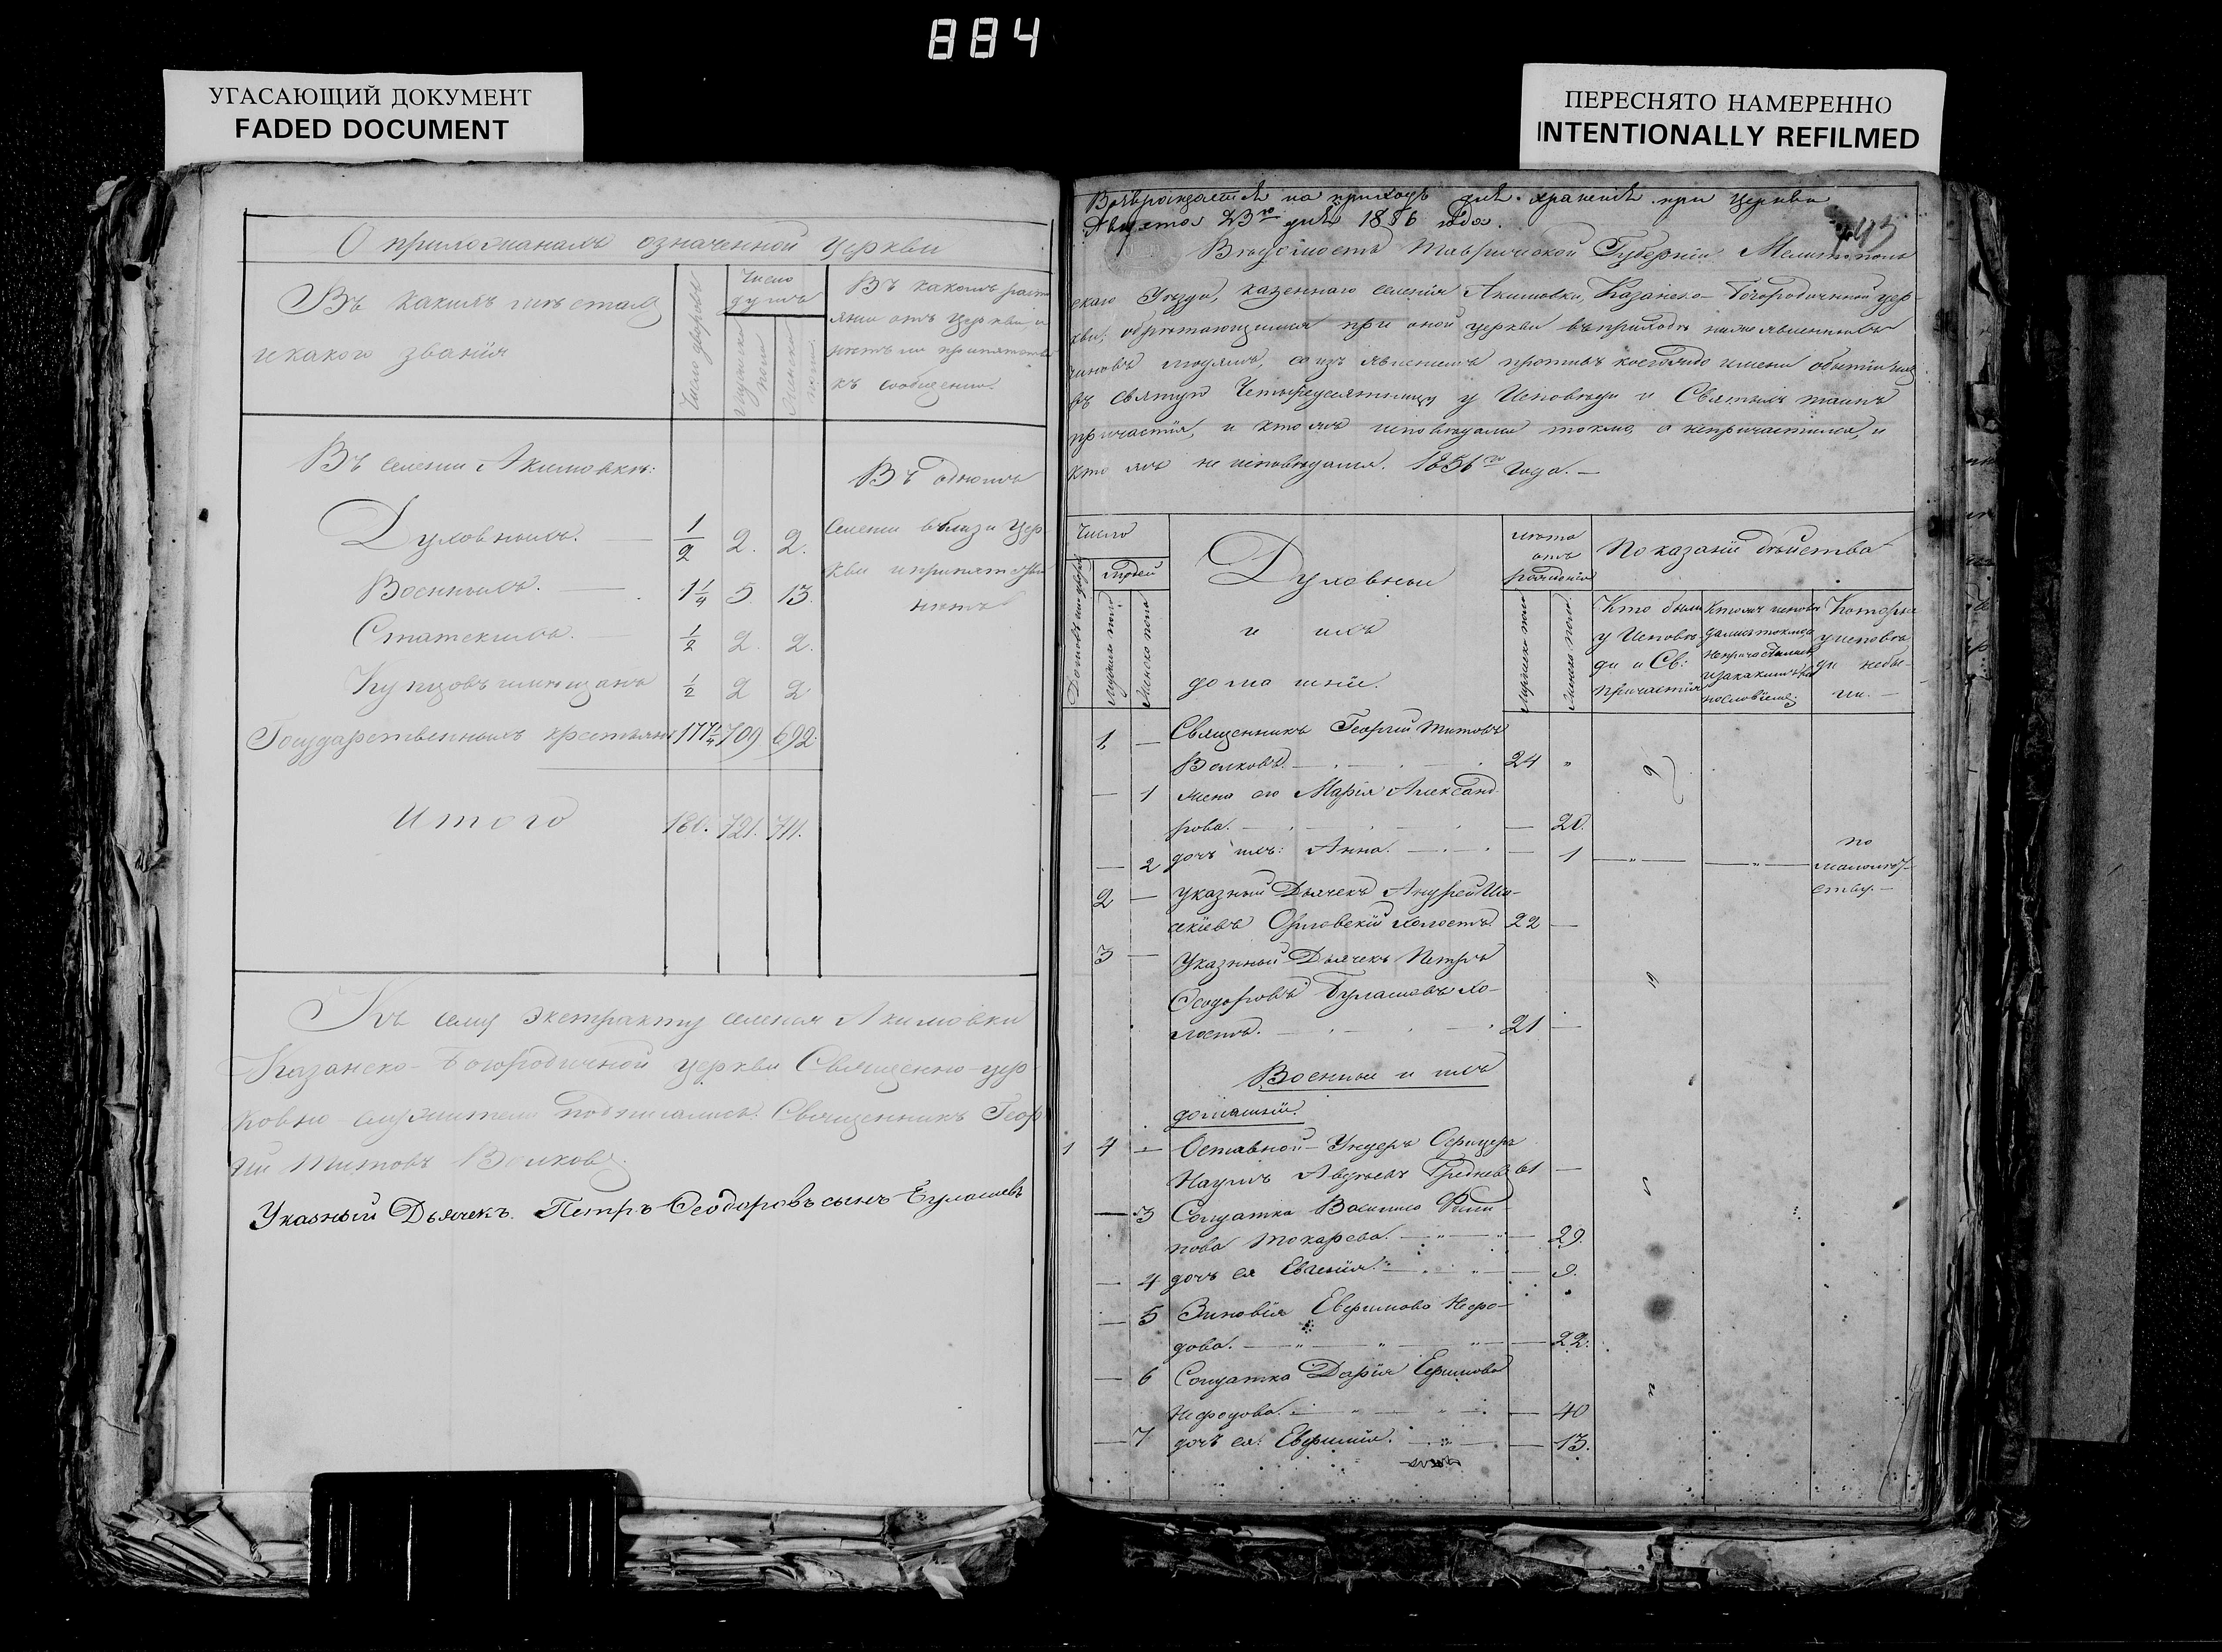 884
УГАСАЮЩИЙ ДОКУМЕНТ
FADED DOCUMENT
ПЕРЕСНЯТО НАМЕРЕННО
INTENTIONALLY REFILMED
О прихожанахъ означенной церкви
Въ какихъ местахъ
и какого званія
Число дворовъ
Число
душъ
мужеска
пола
женска
пола
Въ какомъ разст
яніи отъ церкви, и
нетъ ли препятств
къ сообщенію.
Въ селеніи Акимовкѣ:
Духовныхъ. 1/2 2. 2.
Военныхъ. 1 1/4 5 13.
Статскихъ. 1/2 2. 2.
Купцовъ и мещанъ 1/2 2 2
Государственныхъ крестьянъ 177 1/4 709 692.
Итого 180. 721. 711.
Въ одномъ
селеніи вблизи цер
кви и препятствій
нетъ
Къ сему экстракту селенія Акимовки
Казанско-Богородичной церкви Священно-цер
ковно служители подписались. Священникъ Геор
гій Титовъ Волковъ
Указный Дьячекъ. Петръ Ѳеодоровъ сынъ Булашевъ
Возвращается на приходъ для храненія при церкви
Августа 23го дня 1856 года.
443
Ведомость Таврической Губерніи Мелитополь
скаго Уезда, казеннаго селенія Акимовки, Казанско-Богородичной цер-
кви, обретающимся при оной церкви въ приходе нижеявленныхъ
чиновъ людямъ, со изъявленіемъ противъ коегождо имени о бытіи ихъ
въ святую Четыредесятницу у Исповеди и Святыхъ таинъ
причастія, и кто ихъ исповедался токмо, а не причастился, и
кто же не исповедался. 1856го года.
Число
Домовъ или дворовъ
людей
Мужеска пола
Женска пола
Духовныи
и ихъ
домашніи.
лета
отъ
рожденія
Мужеска пола
Женска пола.
Показаніи действа
Кто были
у Исповѣ-
ди и Св:
причастія
Кто ихъ испове
дались токмо а
не причастились
и за какимъ ви
нословіемъ;
Которыи
у исповѣ
ди небы-
ли.
1 — Священникъ Георгій Титовъ
Волковъ. 24 "
— 1 жена его Марія Александ-
рова. — 20.
— 2 дочь ихъ: Анна. — 1
по
малолет-
ству.
2 — указный Дьячекъ Андрей Иса-
акіевъ Орловскій холостъ 22 —
3 — Указный Дьячекъ Петръ
Ѳеодоровъ Булашевъ хо-
лостъ. 21 —
Военныи и ихъ
домашніи.
1 4 — Отставной Ундеръ Офицеръ
Наумъ Авдѣевъ Гредневъ 61 —
— 3 Солдатка Василиса Фили-
пова Токарева. — 29.
— 4 дочь ея Евгенія. — 9.
— 5 Зиновія Евфимова Нефе-
дова. — 22.
— 6 Солдатка Дарія Ефимова
Нефедова. — 40
— 7 дочь ея: Евфимія. — 13.